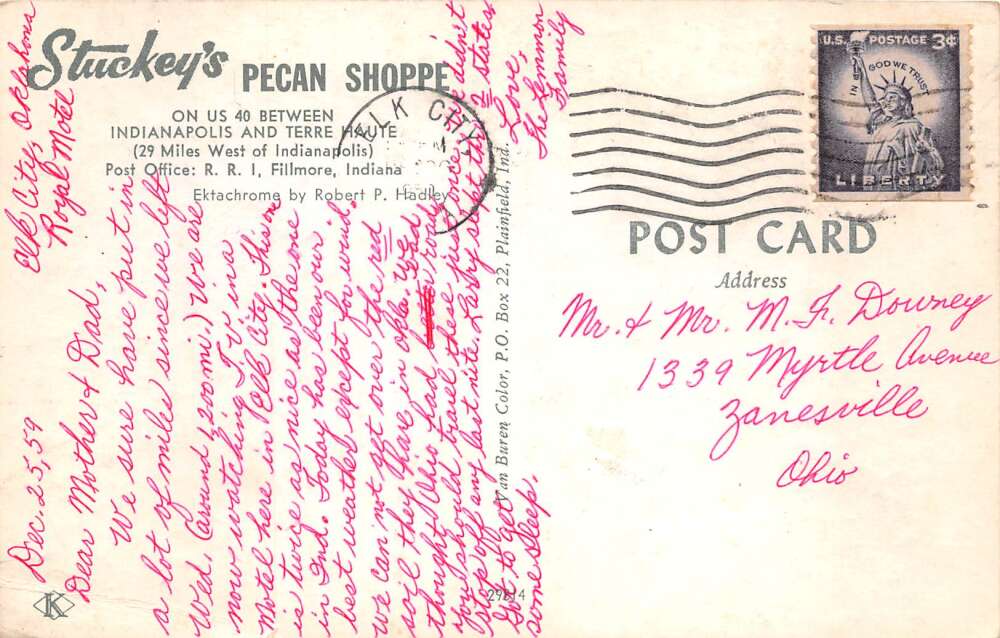 Stuckey's PECAN SHOPPE
ON US 40 BETWEEN
INDIANAPOLIS AND TERRE HAUTE
(29 Miles West of Indianapolis)
Post Office: R. R. 1, Fillmore, Indiana
Ektachrome by Robert P. Hadley
ELK CITY
U.S. POSTAGE 3¢
IN GOD WE TRUST
LIBERTY
POST CARD
Address
Mr. & Mr. M. F. Downey
1339 Myrtle Avenue
Zanesville
Ohio
Elk City, Oklahoma
Royal Motel
Dec. 25, 59
Dear Mother & Dad,
We sure have put in
a lot of miles since we left
Wed. (around 1,200 mi.) We are
now watching TV in a
motel here in Elk City. This one
is twice as nice as the one
in Ind. Today has been our
best weather except for wind.
We can not get over the red
soil they have in Okla. We
thought Ohio had bad roads
you should travel these. Once
stop off any last nite. we didn't
Got to get
some sleep.
Love,
The Lemmon
Family
Van Buren Color, P.O. Box 22, Plainfield, Ind.
29814
K